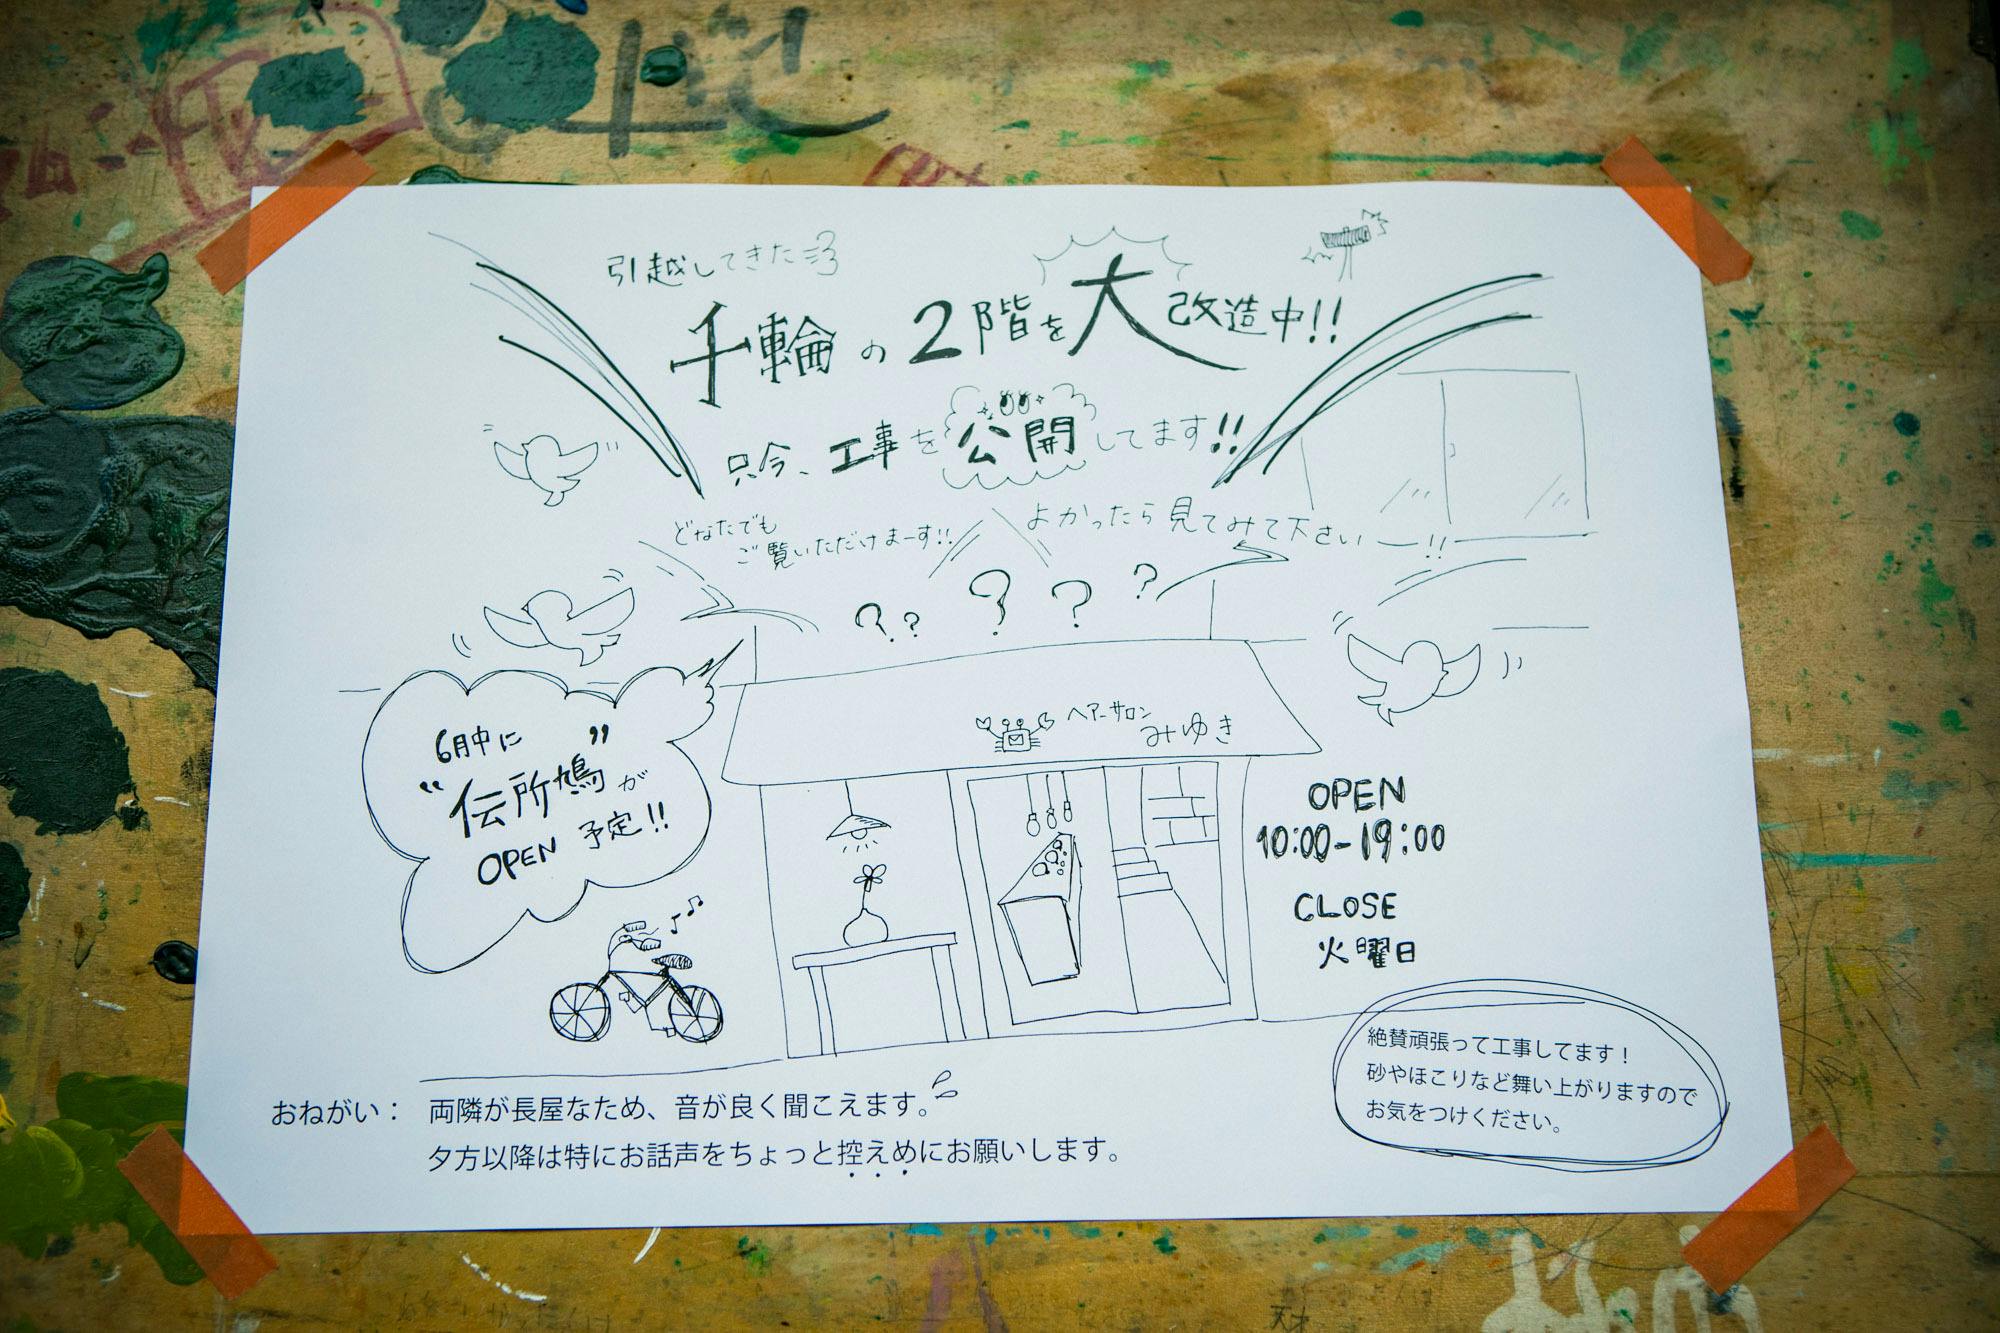 引越してきた
千輪の2階を大改造中!!
只今、工事を公開してます!!
どなたでも
ご覧いただけまーす!!
よかったら見てみて下さいー!!
? ? ? ? ?
6月中に
“伝所鳩”が
OPEN 予定!!
ヘアーサロン
みゆき
OPEN
10:00-19:00
CLOSE
火曜日
絶賛頑張って工事してます！
砂やほこりなど舞い上がりますので
お気をつけください。
おねがい： 両隣が長屋なため、音が良く聞こえます。
夕方以降は特にお話声をちょっと控えめにお願いします。